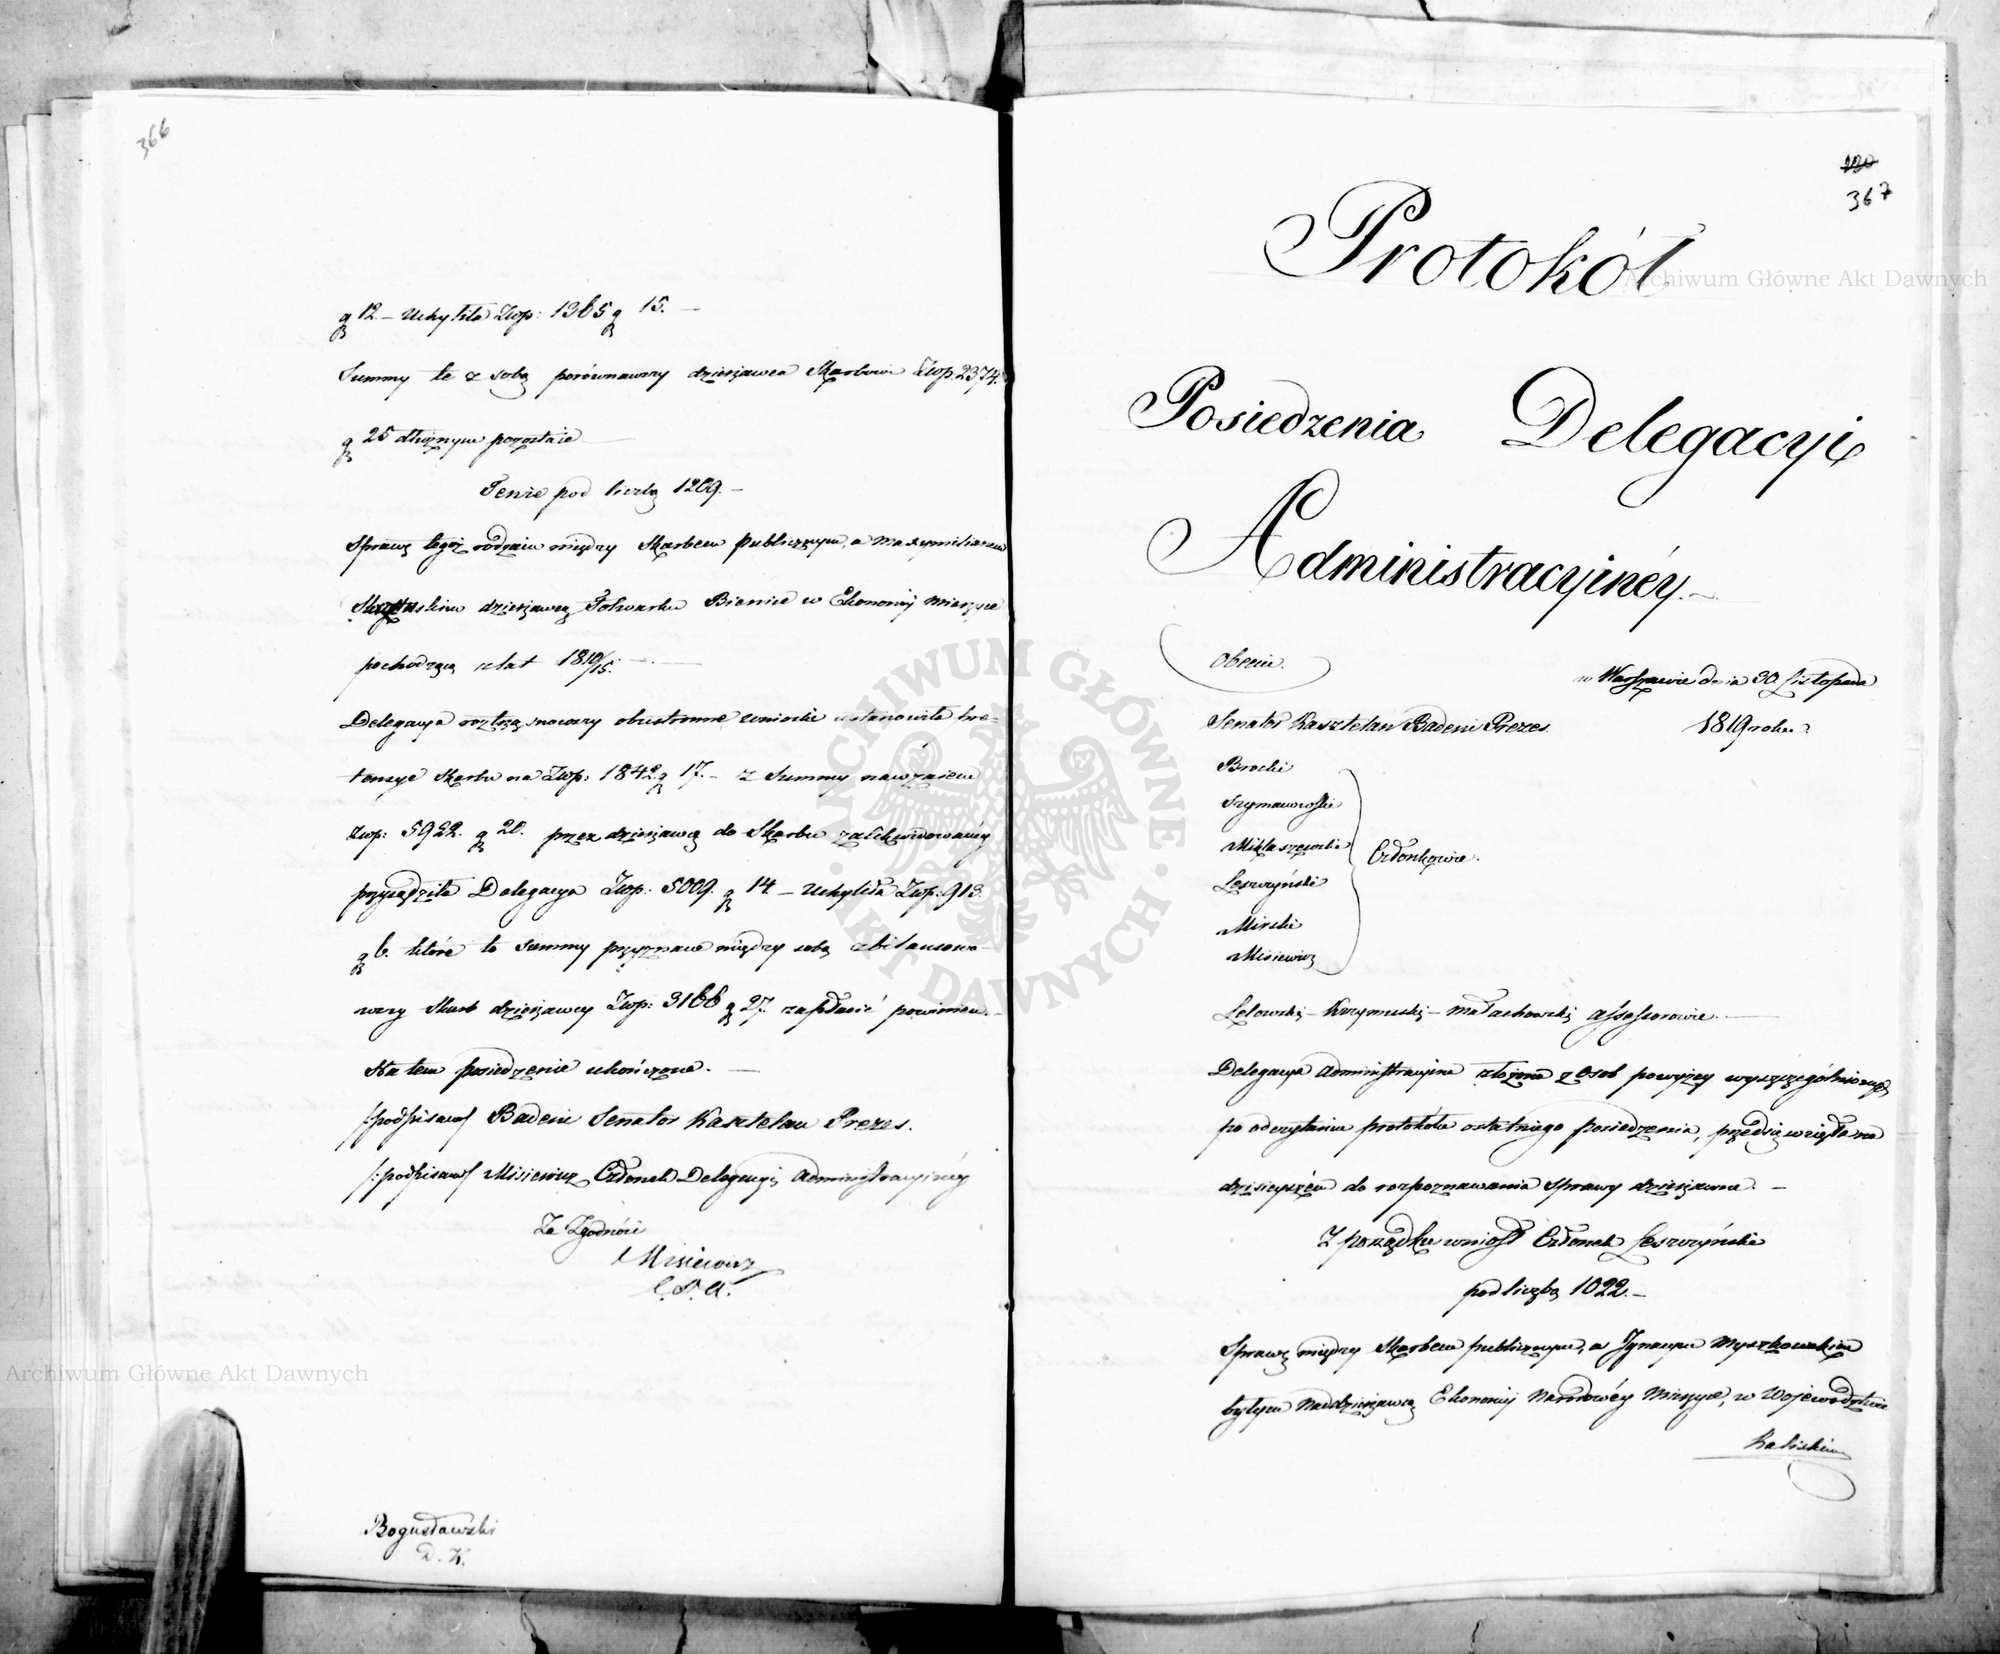 366
gr 12. – Uchyliła Złłp: 1365 gr 15. –
Summy te z sobą porównawszy dzierżawca Skarbowi Złłp. 2374.
gr 25 dłużnym pozostaie
Tenże pod liczbą 1209. –
Sprawę tegoż rodzaiu między Skarbem publicznym, a Maxymilianem
dzierżawcą Folwarku Bienice w Ekonomij Mierzyce
pochodzącą z lat 1810/15.
Delegacya roztrząsnąwszy obustronne wnioski ustanowiła pre-
tensye Skarbu na Złłp: 1842 gr 17. – z Summy nawzaiem
Złłp: 5922. gr 20. przez dzierżawcę do Skarbu zalikwidowanéy
przysądziła Delegacya Złłp: 5009. gr 14 – Uchyliła Złłp: 913.
gr 6. które to Summy przyznane między sobą zbilansowa-
wszy Skarb dzierżawcy Złłp: 3166 gr 27. zapłacić powinien. –
Na tem posiedzenie ukończone. –
/:podpisano/ Badeni Senator Kasztelan Prezes.
/:podpisano/ Misiewicz Członek Delegacyi Administracyinéy
Za Zgodność
Misiewicz
C. D. A.
Bogusławski
D. K.
120
367
Protokół
Posiedzenia Delegacyi
Administracyinéy. –
Obecni.
w Warszawie dnia 30 Listopada
1819 roku
Senator Kasztelan Badeni Prezes.
Brocki
Szymanowski
Miklaszewski
Członkowie.
Leszczyński
Mirski
Misiewicz
Lelowski – Krzymuski – Małachowski Assessorowie. –
Delegacya Administracyina złożona z Osób powyżey wyszczególnionych
po odczytaniu protokółu ostatniego posiedzenia, przedsięwzięła na
dzisieyszem do rozpoznawania Sprawy dzierżawne. –
Z porządku wniosł Członek Leszczyński
pod liczbą 1022. –
Sprawę między Skarbem publicznym, a Ignacym Myszkowskim
byłym Naddzierżawcą Ekonomij Narodowéy Mierzyce, w Województwie
Kaliskim
Archiwum Główne Akt Dawnych
Archiwum Główne Akt Dawnych
ARCHIWUM GŁÓWNE AKT DAWNYCH